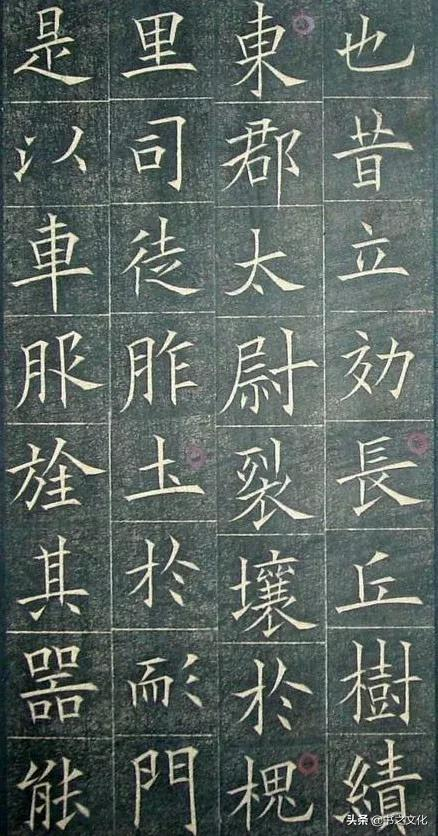 也昔立効長丘樹績
東郡太尉裂壤於槐
里司徒胙土於耏門
是以車服旌其器能
头条 @书之文化